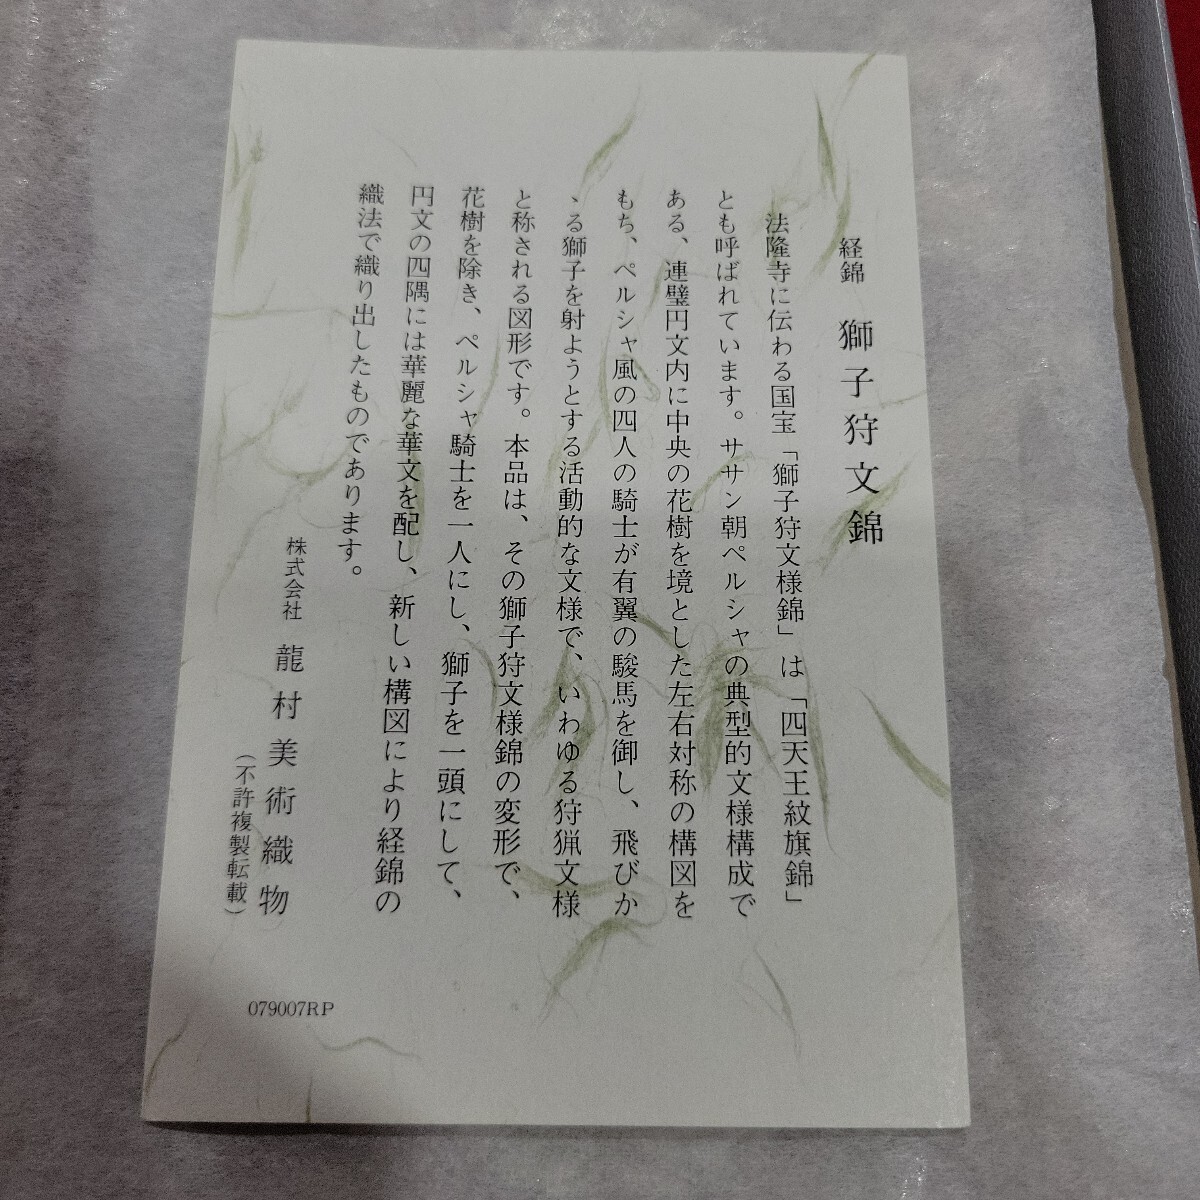 経錦　獅子狩文錦
法隆寺に伝わる国宝「獅子狩文様錦」は「四天王紋旗錦」
とも呼ばれています。ササン朝ペルシャの典型的文様構成で
ある、連璧円文内に中央の花樹を境とした左右対称の構図を
もち、ペルシャ風の四人の騎士が有翼の駿馬を御し、飛びか
ゝる獅子を射ようとする活動的な文様で、いわゆる狩猟文様
と称される図形です。本品は、その獅子狩文様錦の変形で、
花樹を除き、ペルシャ騎士を一人にし、獅子を一頭にして、
円文の四隅には華麗な華文を配し、新しい構図により経錦の
織法で織り出したものであります。
株式会社　龍村美術織物
（不許複製転載）
079007RP